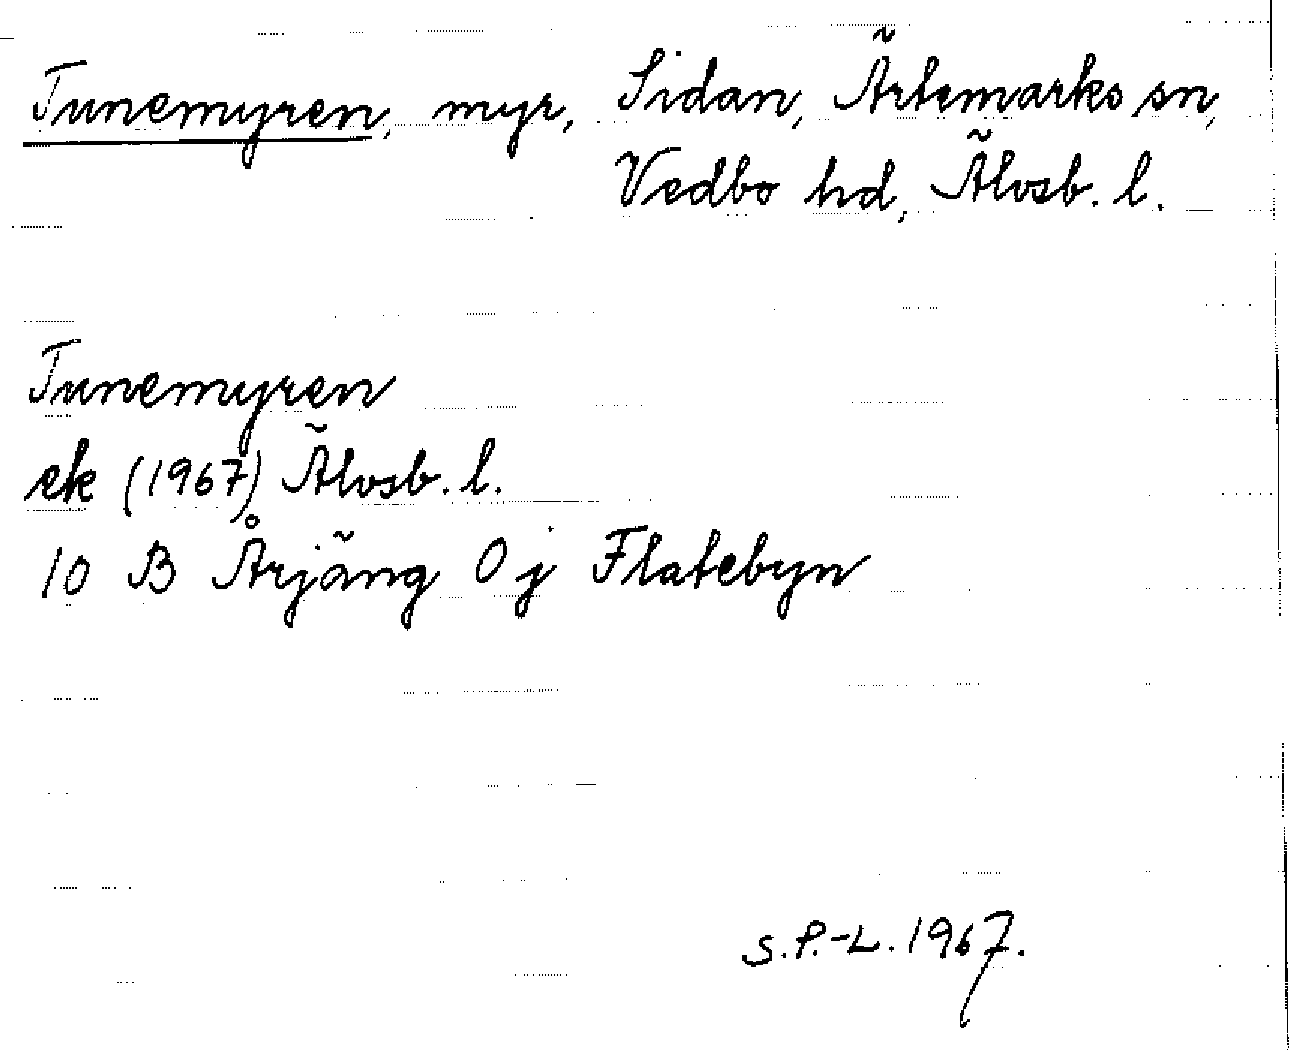 Tunemyren, myr, Sidan, Ärtemarks sn,
Vedbo hd, Älvsb. l.
Tunemyren
ek (1967) Älvsb. l.
10 B Årjäng 0 j Flatebyn
S.P.-L. 1967.